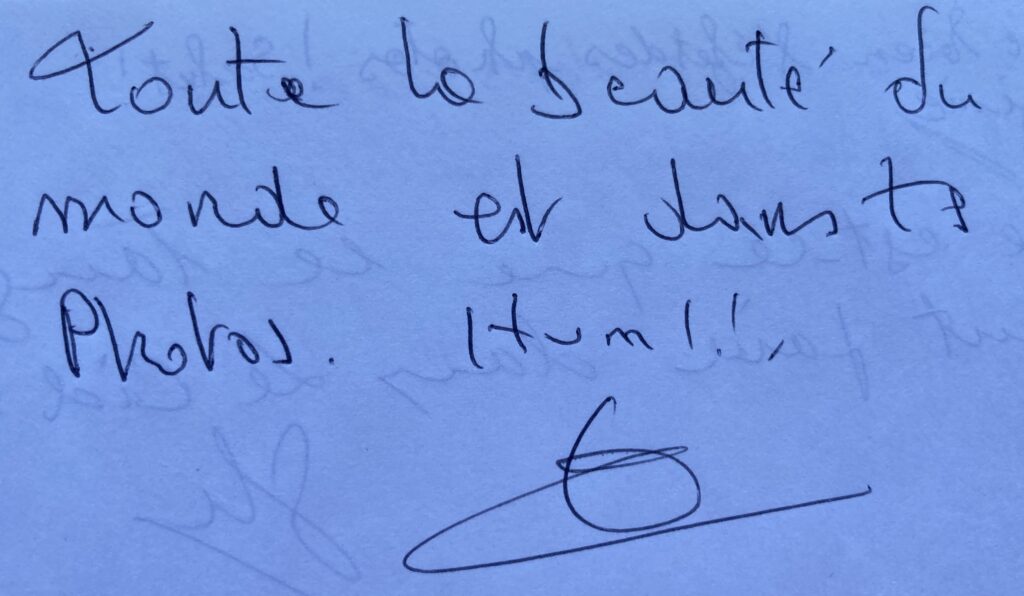 Toute la beauté du
monde est dans te
Photos. Hum !!